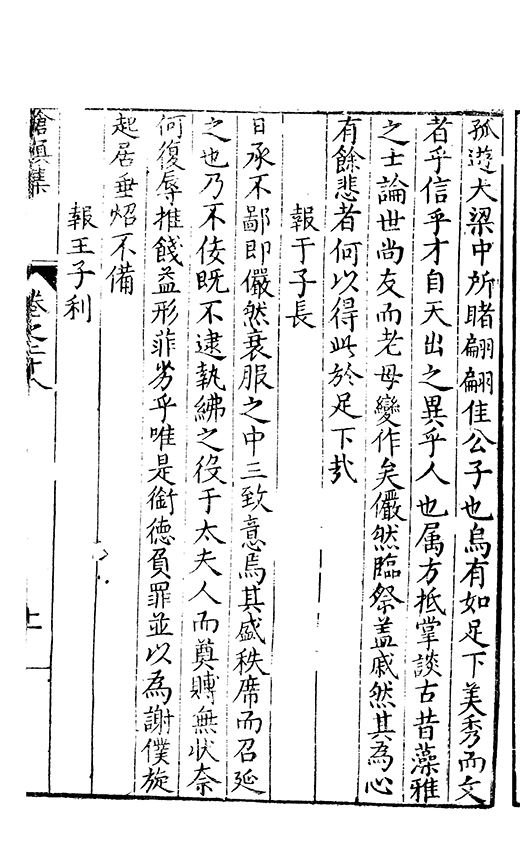 孤遊大梁中所睹翩翩佳公子也烏有如足下美秀而文
者乎信乎才自天出之異乎人也属方抵掌談古昔藻雅
之士論世尚友而老母變作矣儼然臨祭盖戚然其為心
有餘悲者何以得此於足下㢤
報于子長
日承不鄙即儼然衰服之中三致意焉其盛秩席而召延
之也乃不佞既不逮執紼之役于太夫人而奠賻無状奈
何復辱推餞益形菲劣乎唯是銜德負罪並以為謝僕旋
起居垂炤不備
報王子利
滄溟集
卷之二十八
十一